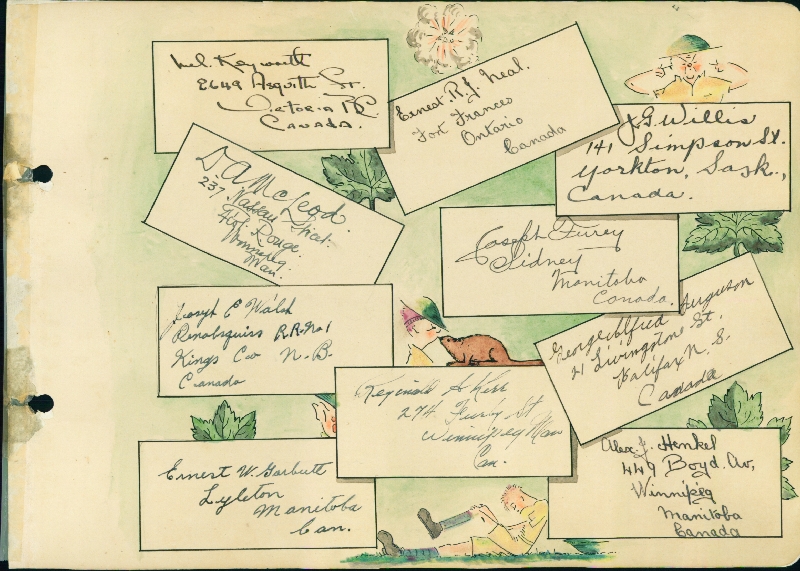 Mel. Keyworth
2649 Asquith St.
Victoria BC
CANADA.
Ernest. R. J. Neal.
Fort Frances
Ontario
Canada
J. G. Willis
141 Simpson St.
Yorkton, Sask.,
Canada.
D A McLeod.
237 Nassau Street
Fort Rouge.
Winnipeg
Man.
Joseph Furrey
Sidney
Manitoba
Canada.
Joseph E Walsh
Penobsquiss R.R. No 1
Kings Co N. B.
Canada
George Alfred Ferguson
21 Livingstone St.
Halifax N. S.
Canada
Reginald A Kerr
274 St
Winnipeg Man
Can.
Ernest W. Garbutt
Lyleton
Manitoba
Can.
Alex J. Henkel
449 Boyd. Av,
Winnipeg
Manitoba
Canada